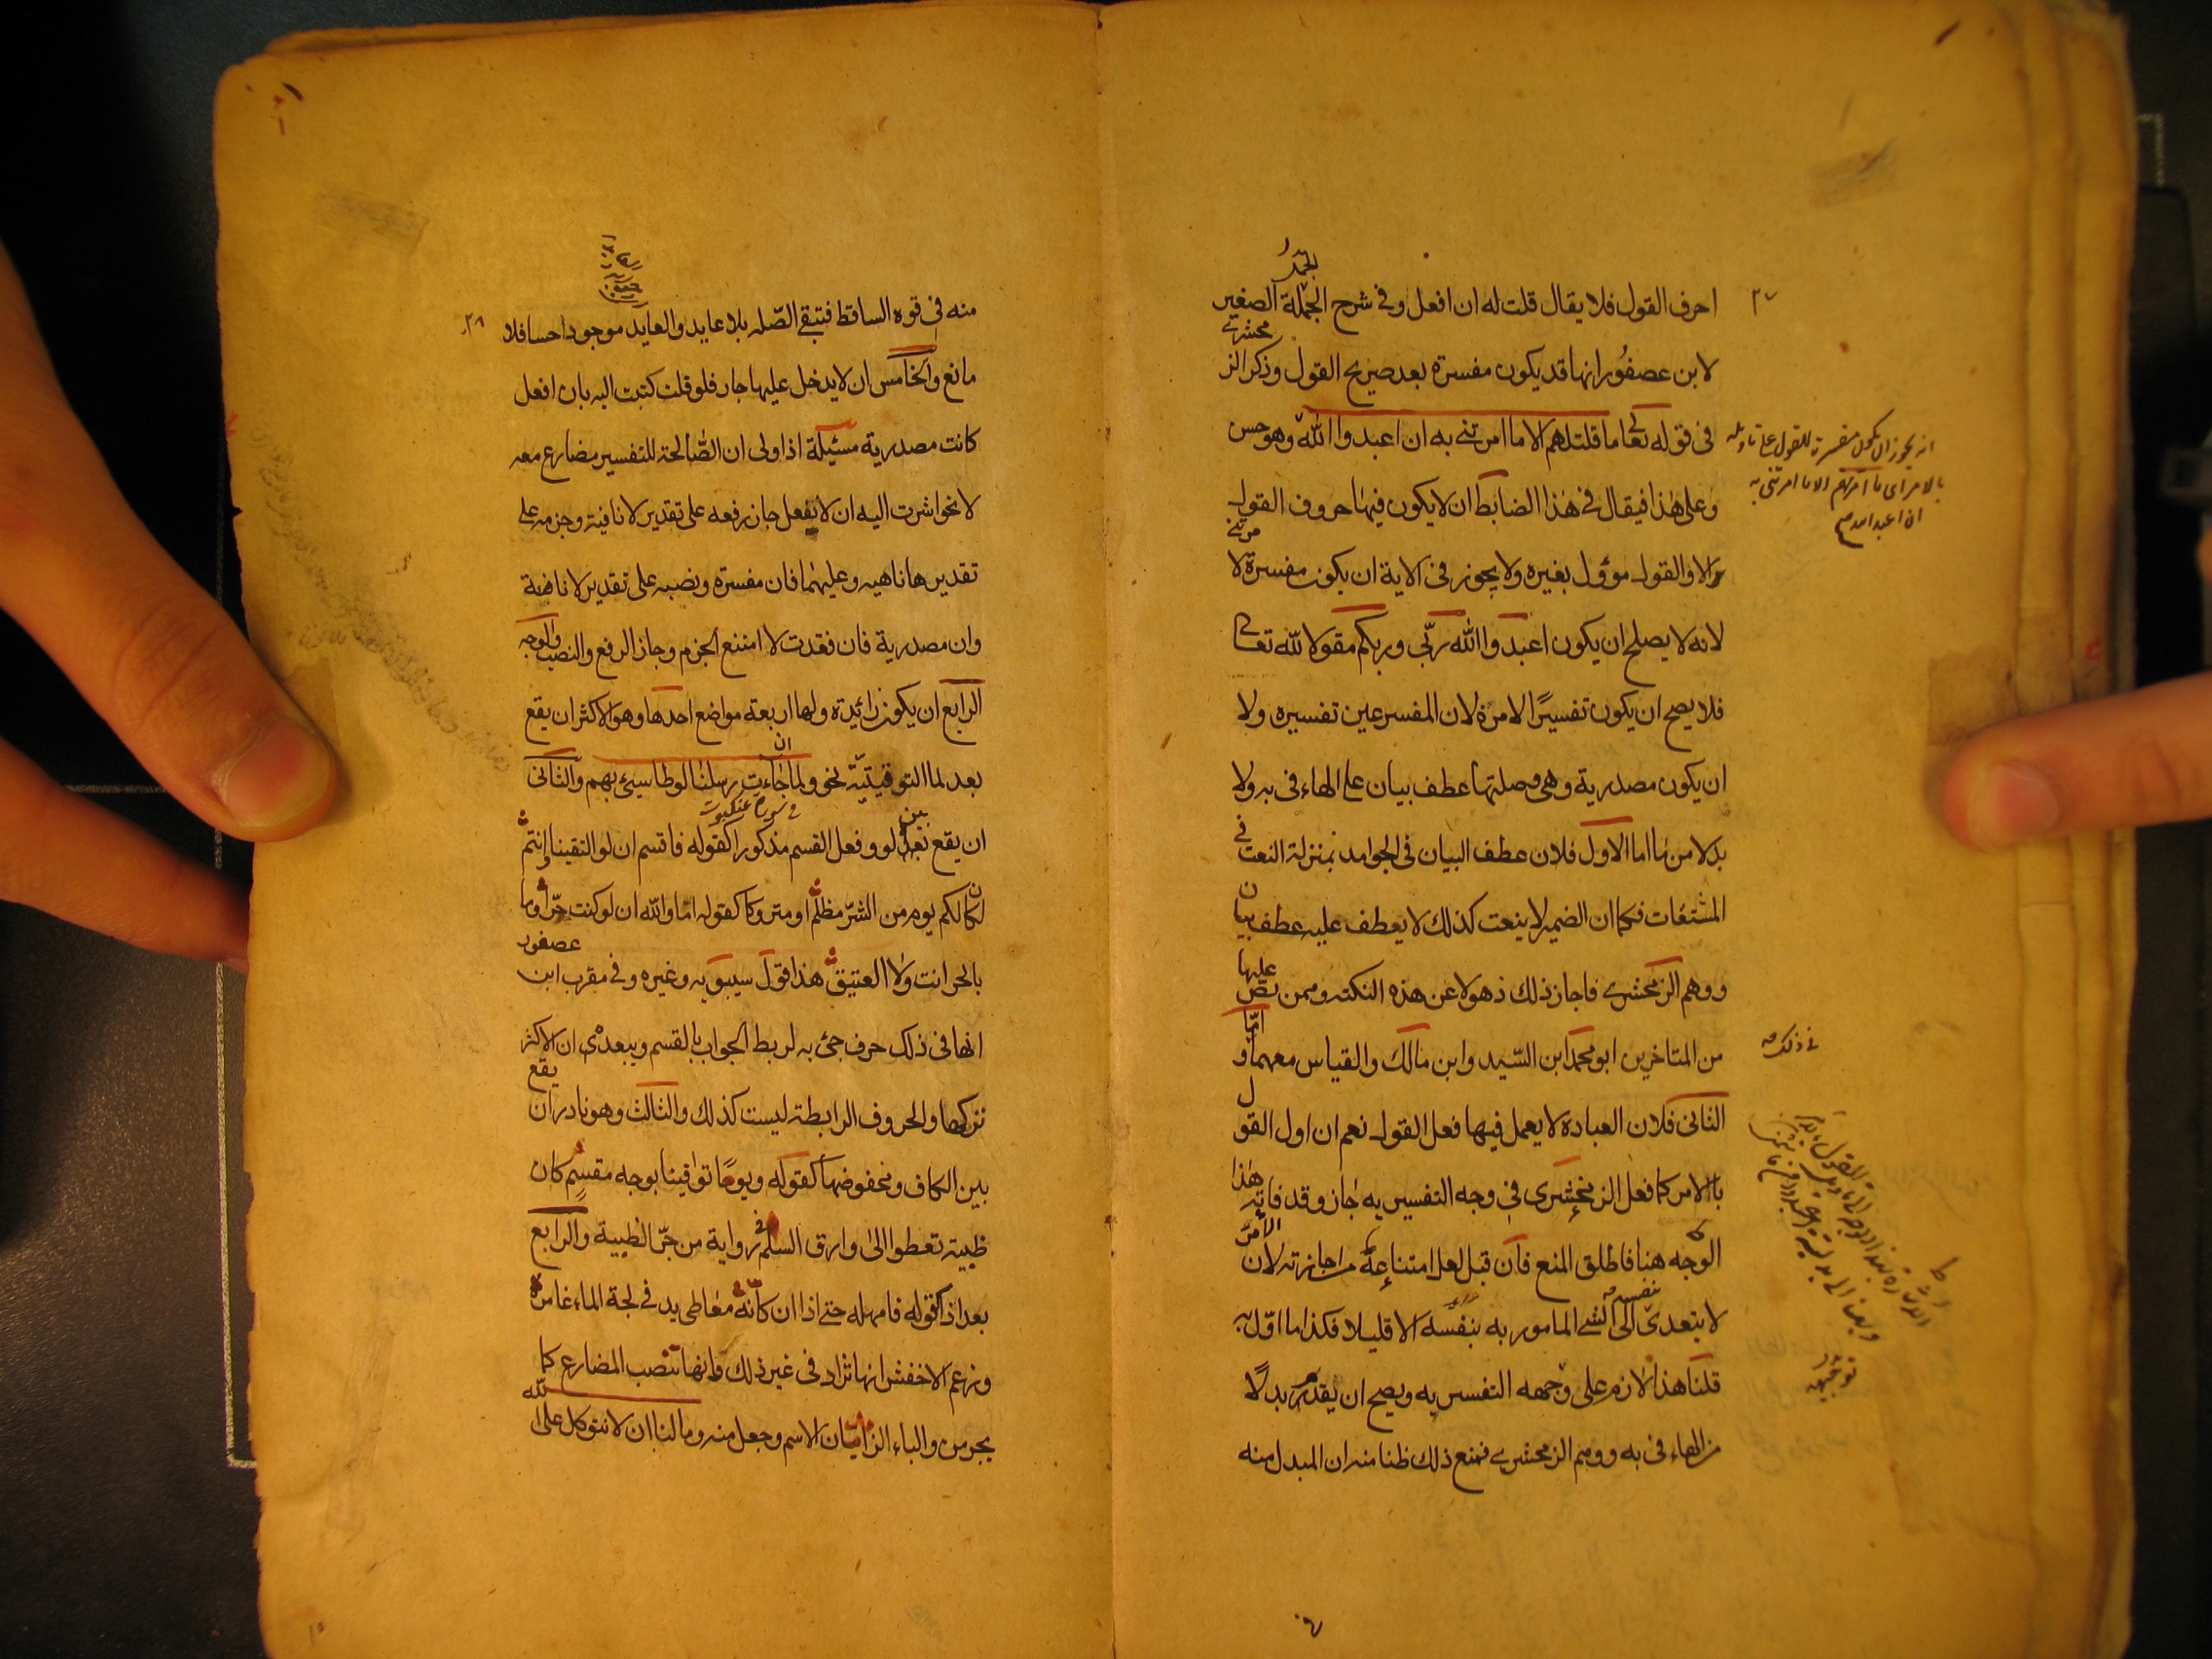 ٣٧
احرف القول فلا يقال قلت له ان افعل وفي شرح الجملة الصغير
لابن عصفور انها قد يكون مفسرة بعد صريح القول وذكر الز
مخشري
في قوله تعالى ما قلت لهم الا ما امرتني به ان اعبدوا الله وهو حسن
وعلى هذا فيقال في هذا الضابط ان لا يكون فيها حروف القول
الا والقول مؤول بغيره ولا يجوز في الاية ان يكون مفسرة لا
مرتني
لانه لا يصلح ان يكون اعبدوا الله ربي وربكم مقولا لله تعالى
فلا يصح ان يكون تفسيرًا لامره لان المفسر عين تفسيره ولا
ان يكون مصدرية وهي وصلتها عطف بيان على الهاء في به ولا
بدلا من ما اما الاول فلان عطف البيان في الجوامد بمنزلة النعت في
المشتقات فكما ان الضمير لا ينعت كذلك لا يعطف عليه عطف بيان
ووهم الزمخشري فاجاز ذلك ذهولا عن هذه النكتة وممن نص عليها
من المتاخرين ابو محمد ابن السّيد وابن مالك والقياس معهما و
امّا
الثاني فلان العبادة لا يعمل فيها فعل القول نعم ان اول القول
بالامر كما فعل الزمخشري في وجه التفسيريه جاز وقد فاته هذا
الوجه هنا فاطلق المنع فان قيل لعل امتناعه من اجازته لان الامر
لا يتعدى الى الشي المامور به بنفسه الا قليلا فكذا ما اوّل به
قلنا هذا لازم على وجهه التفسيريه ويصح ان يقدر بدلا
من الهاء في به ووهم الزمخشري فمنع ذلك ظنا منه ان المبدل منه
انه يجوز ان يكون مفسرة للقول على تاويله
بالامر اى ما امرتهم الا ما امرتنى به
ان اعبدوا الله
في ذلك
٣٨
منه في قوه الساقط فتبقى الصّله بلا عايد والعايد موجود حسا فلا
مانع والخامس ان لا يدخل عليها جار فلو قلت كتبت اليه بان افعل
كانت مصدرية مسئلة اذا ولى ان الصّالحة للتفسير مضارع معه
لا نحو اشرت اليه ان لا يفعل جاز رفعه على تقدير لا نافية وجزمه على
تقديرها ناهيه وعليهما فان مفسرة ونصبه على تقدير لا نافية
وان مصدرية فان فقدت لا امتنع الجزم وجاز الرفع والنصب والوجه
الرابع ان يكون زائدة ولها اربعة مواضع احدها وهو الاكثر ان يقع
بعد لما التوقيتيّة نحو ولما ان جاءت رسلنا لوطا سيئ بهم والثاني
في سورة عنكبوت
ان يقع بين لو وفعل القسم مذكورا كقوله فاقسم ان لو التقينا وانتم
لكان لكم يوم من الشرّ مظلم او متروكا كقوله اما والله ان لو كنت حرّا وما
بالحر انت ولا العتيق هذا قول سيبويه وغيره وفي مقرب ابن عصفور
انها في ذلك حرف جئ به لربط الجواب بالقسم ويبعده ان الاكثر
تركها والحروف الرابطة ليست كذلك والثالث وهو نادر ان يقع
بين الكاف ومخفوضها كقوله ويومًا توافينا بوجه مقسم كان
ظبية تعطوا الى وارق السلم في رواية من جرّ الظبية والرابع
بعد اذا كقوله فامهله حتى اذا ان كانّه معاطى يد في لجة الماء غامر
وزعم الاخفش انها تزاد في غير ذلك وانها تنصب المضارع كما
يجر من والباء الزائدتان الاسم وجعل منه وما لنا ان لا نتوكل على الله